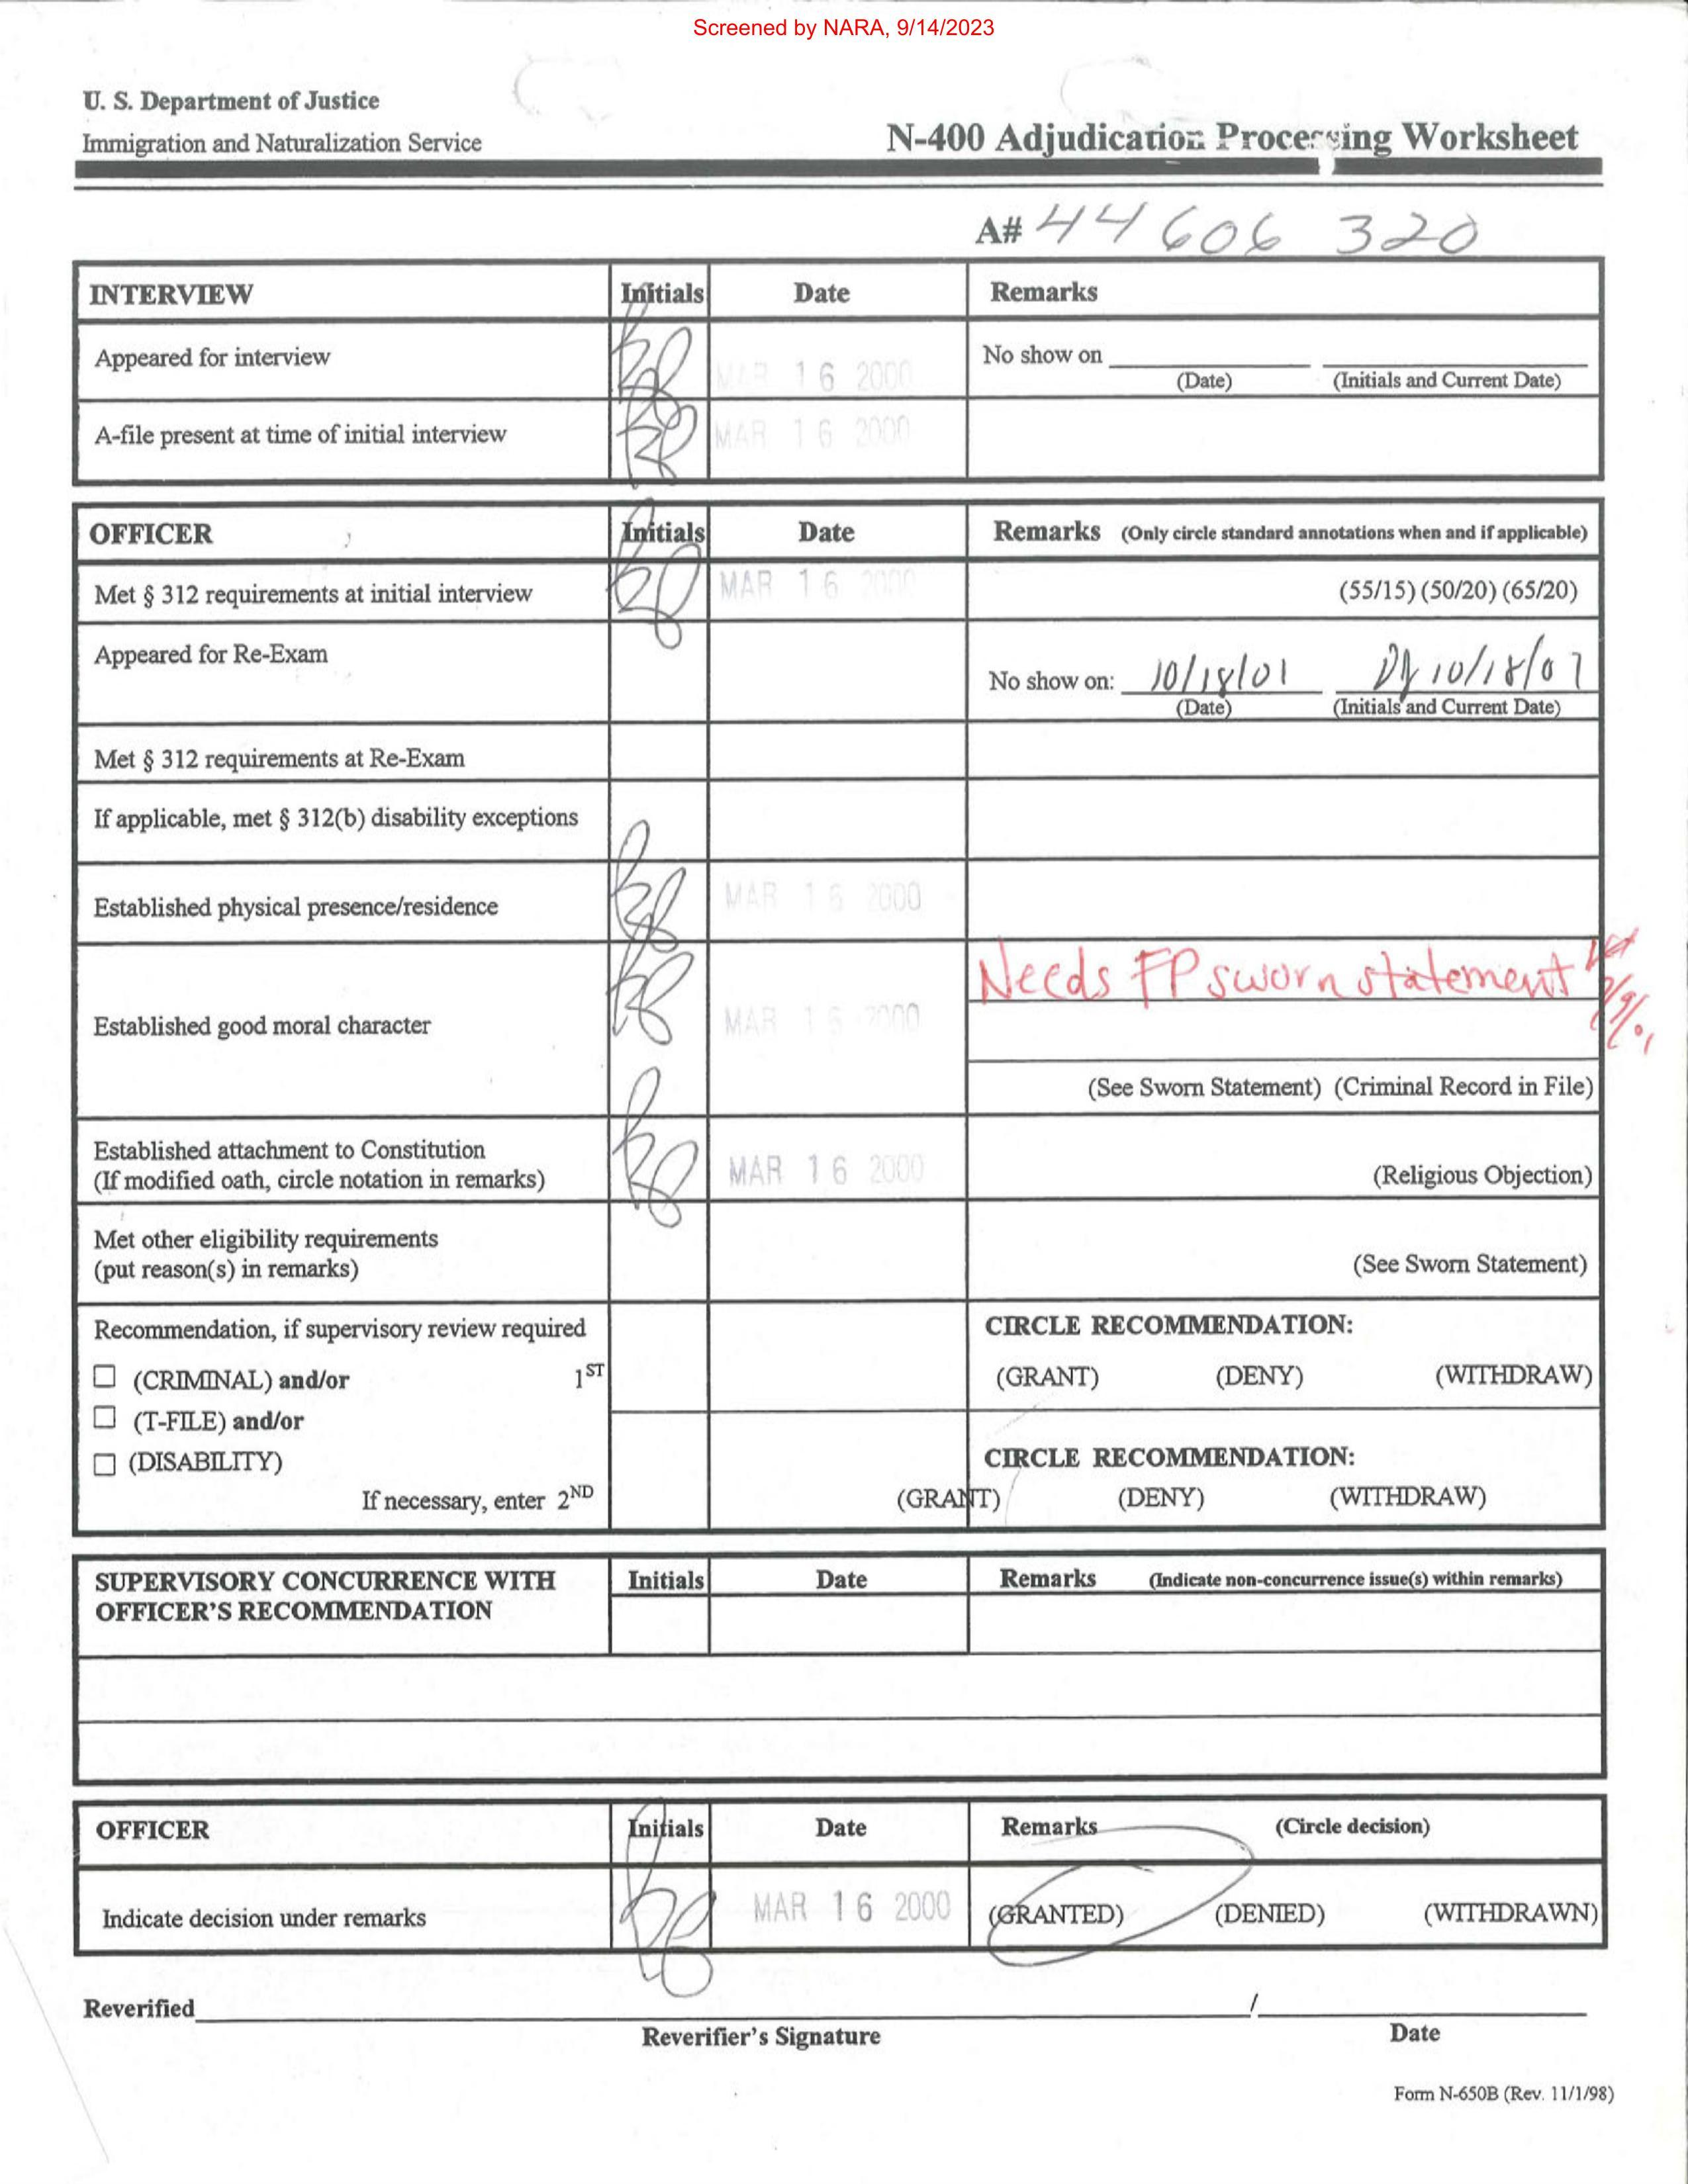 Screened by NARA, 9/14/2023
U. S. Department of Justice
Immigration and Naturalization Service
N-400 Adjudication Processing Worksheet
A# 44 606 320
INTERVIEW Initials Date Remarks
Appeared for interview MAR 16 2000 No show on
(Date) (Initials and Current Date)
A-file present at time of initial interview MAR 16 2000
OFFICER Initials Date Remarks (Only circle standard annotations when and if applicable)
Met § 312 requirements at initial interview MAR 16 2000 (55/15) (50/20) (65/20)
Appeared for Re-Exam
No show on: 10/18/01 10/18/01
(Date) (Initials and Current Date)
Met § 312 requirements at Re-Exam
If applicable, met § 312(b) disability exceptions
Established physical presence/residence MAR 16 2000
Needs FP sworn statement
Established good moral character MAR 16 2000
(See Sworn Statement) (Criminal Record in File)
Established attachment to Constitution
(If modified oath, circle notation in remarks) MAR 16 2000 (Religious Objection)
Met other eligibility requirements
(put reason(s) in remarks) (See Sworn Statement)
Recommendation, if supervisory review required CIRCLE RECOMMENDATION:
☐ (CRIMINAL) and/or 1ST (GRANT) (DENY) (WITHDRAW)
☐ (T-FILE) and/or
☐ (DISABILITY) CIRCLE RECOMMENDATION:
If necessary, enter 2ND (GRANT) (DENY) (WITHDRAW)
SUPERVISORY CONCURRENCE WITH Initials Date Remarks (Indicate non-concurrence issue(s) within remarks)
OFFICER'S RECOMMENDATION
OFFICER Initials Date Remarks (Circle decision)
Indicate decision under remarks MAR 16 2000 (GRANTED) (DENIED) (WITHDRAWN)
Reverified /
Reverifier's Signature Date
Form N-650B (Rev. 11/1/98)